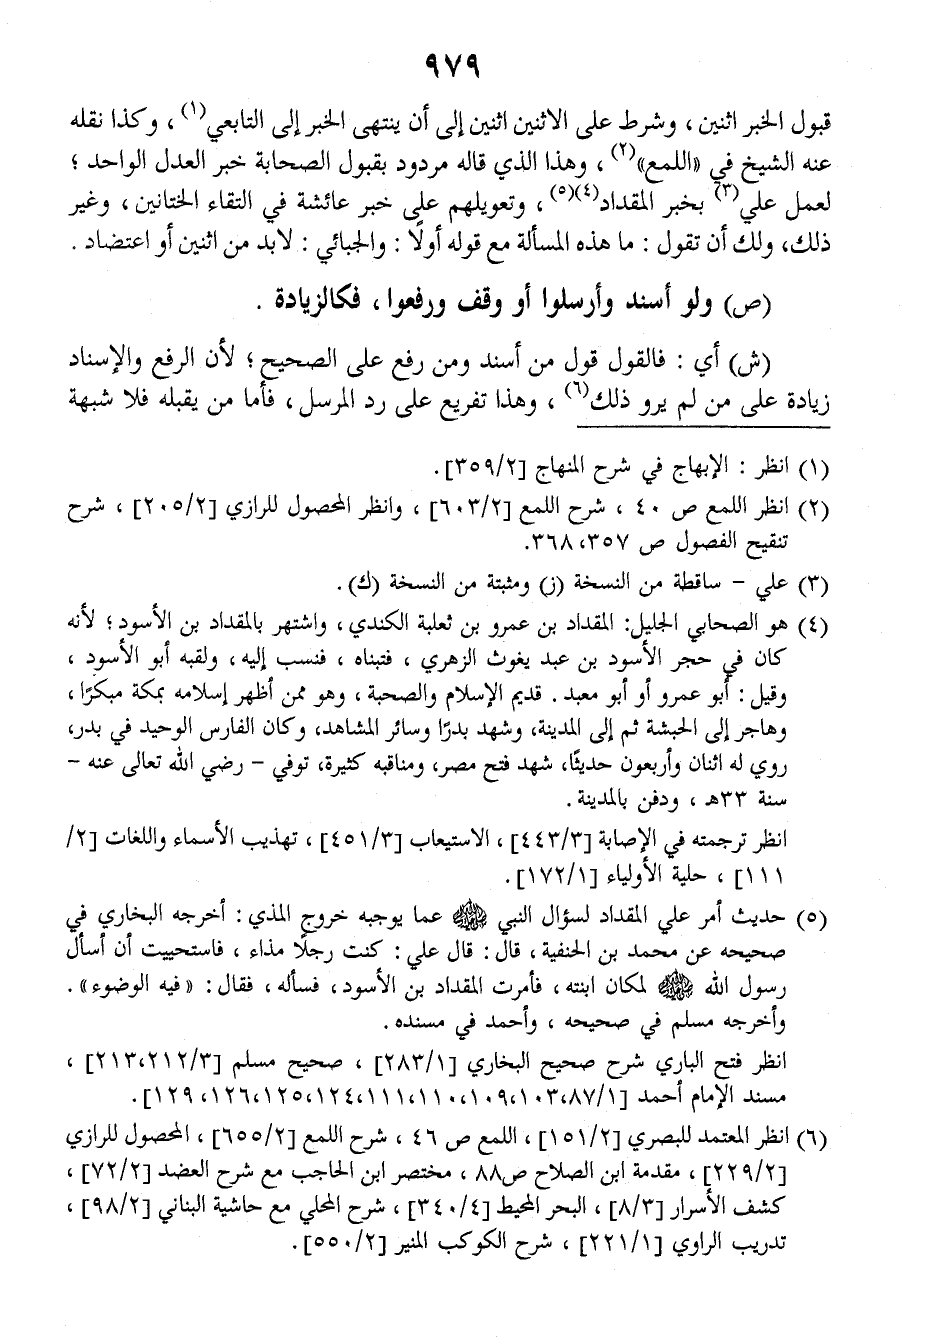 ٩٧٩
قبول الخبر اثنين ، وشرط على الاثنين اثنين إلى أن ينتهى الخبر إلى التابعي(١) ، وكذا نقله
عنه الشيخ في «اللمع»(٢) ، وهذا الذي قاله مردود بقبول الصحابة خبر العدل الواحد ؛
لعمل علي(٣) بخبر المقداد(٤)(٥) ، وتعويلهم على خبر عائشة في التقاء الختانين ، وغير
ذلك، ولك أن تقول : ما هذه المسألة مع قوله أولًا : والجبائي : لابد من اثنين أو اعتضاد .
(ص) ولو أسند وأرسلوا أو وقف ورفعوا ، فكالزيادة .
(ش) أي : فالقول قول من أسند ومن رفع على الصحيح ؛ لأن الرفع والإسناد
زيادة على من لم يرو ذلك(٦) ، وهذا تفريع على رد المرسل ، فأما من يقبله فلا شبهة
(١) انظر : الإبهاج في شرح المنهاج [٣٥٩/٢] .
(٢) انظر اللمع ص ٤٠ ، شرح اللمع [٦٠٣/٢] ، وانظر المحصول للرازي [٢٠٥/٢] ، شرح
تنقيح الفصول ص ٣٥٧، ٣٦٨.
(٣) علي – ساقطة من النسخة (ز) ومثبتة من النسخة (ك) .
(٤) هو الصحابي الجليل: المقداد بن عمرو بن ثعلبة الكندي، واشتهر بالمقداد بن الأسود ؛ لأنه
كان في حجر الأسود بن عبد يغوث الزهري ، فتبناه ، فنسب إليه ، ولقبه أبو الأسود ،
وقيل : أبو عمرو أو أبو معبد . قديم الإسلام والصحبة ، وهو ممن أظهر إسلامه بمكة مبكرًا ،
وهاجر إلى الحبشة ثم إلى المدينة، وشهد بدرًا وسائر المشاهد، وكان الفارس الوحيد في بدر،
روي له اثنان وأربعون حديثًا، شهد فتح مصر، ومناقبه كثيرة، توفي – رضي الله تعالى عنه –
سنة ٣٣هـ ، ودفن بالمدينة .
انظر ترجمته في الإصابة [٤٤٣/٣] ، الاستيعاب [٤٥١/٣] ، تهذيب الأسماء واللغات [٢/
١١١] ، حلية الأولياء [١٧٢/١] .
(٥) حديث أمر علي المقداد لسؤال النبي ﷺ عما يوجبه خروج المذي : أخرجه البخاري في
صحيحه عن محمد بن الحنفية ، قال : قال علي : كنت رجلًا مذاء ، فاستحييت أن أسأل
رسول الله ﷺ لمكان ابنته ، فأمرت المقداد بن الأسود ، فسأله ، فقال : « فيه الوضوء» .
وأخرجه مسلم في صحيحه ، وأحمد في مسنده .
انظر فتح الباري شرح صحيح البخاري [٢٨٣/١] ، صحيح مسلم [٢١٢/٣،٢١٣] ،
مسند الإمام أحمد [٨٧/١، ١٠٣، ١٠٩، ١١٠، ١١١، ١٢٤، ١٢٥، ١٢٦، ١٢٩] .
(٦) انظر المعتمد للبصري [١٥١/٢] ، اللمع ص ٤٦ ، شرح اللمع [٦٥٥/٢] ، المحصول للرازي
[٢٢٩/٢] ، مقدمة ابن الصلاح ص٨٨ ، مختصر ابن الحاجب مع شرح العضد [٧٢/٢] ،
كشف الأسرار [٨/٣] ، البحر المحيط [٣٤٠/٤] ، شرح المحلي مع حاشية البناني [٩٨/٢] ،
تدريب الراوي [٢٢١/١] ، شرح الكوكب المنير [٥٥٠/٢] .